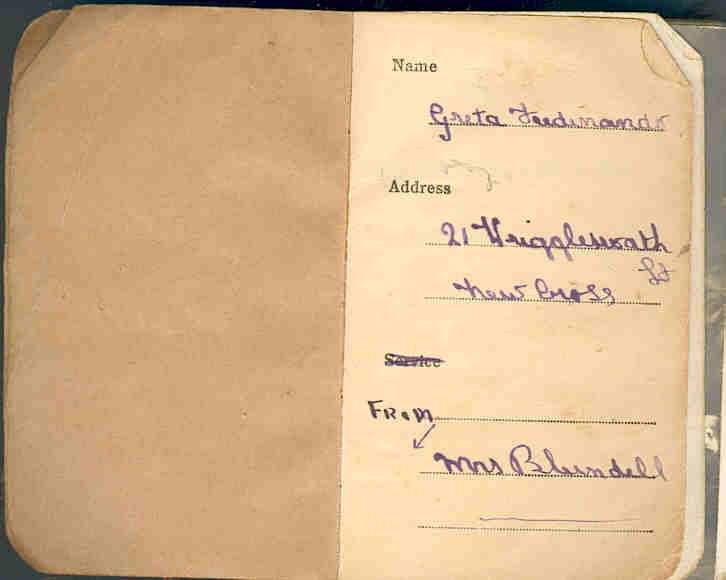 Name
Greta Ferdinands
Address
21 Wrigglesworth
St
New Cross
Service
FROM
Mrs Blundell